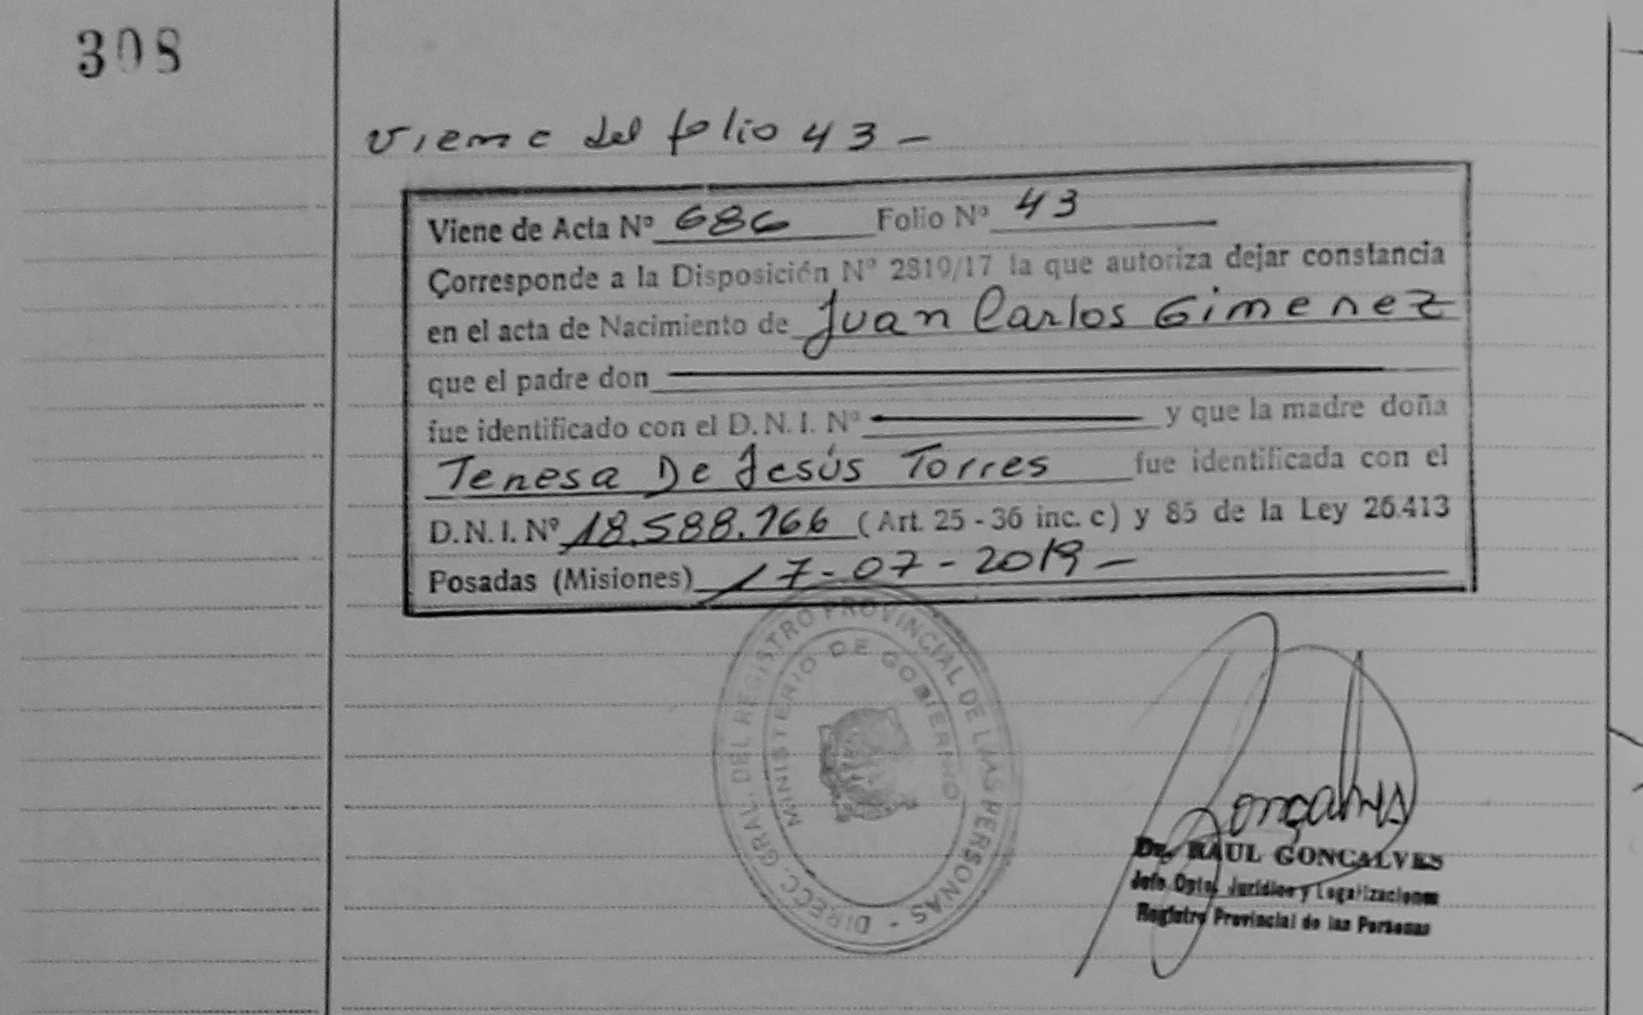 308
Viene del folio 43 -
Viene de Acta Nº 686 Folio Nº 43
Corresponde a la Disposición Nº 2819/17 la que autoriza dejar constancia
en el acta de Nacimiento de Juan Carlos Gimenez
que el padre don
fue identificado con el D.N.I. Nº y que la madre doña
Teresa De Jesús Torres fue identificada con el
D.N.I. Nº 18.588.166 (Art. 25 - 36 inc. c) y 85 de la Ley 26.413
Posadas (Misiones) 17-07-2019 -
DIRECC. GRAL. DEL REGISTRO PROVINCIAL DE LAS PERSONAS -
MINISTERIO DE GOBIERNO
Gonçalves
Dr. RAUL GONCALVES
Jefe Dpto. Jurídico y Legalizaciones
Registro Provincial de las Personas